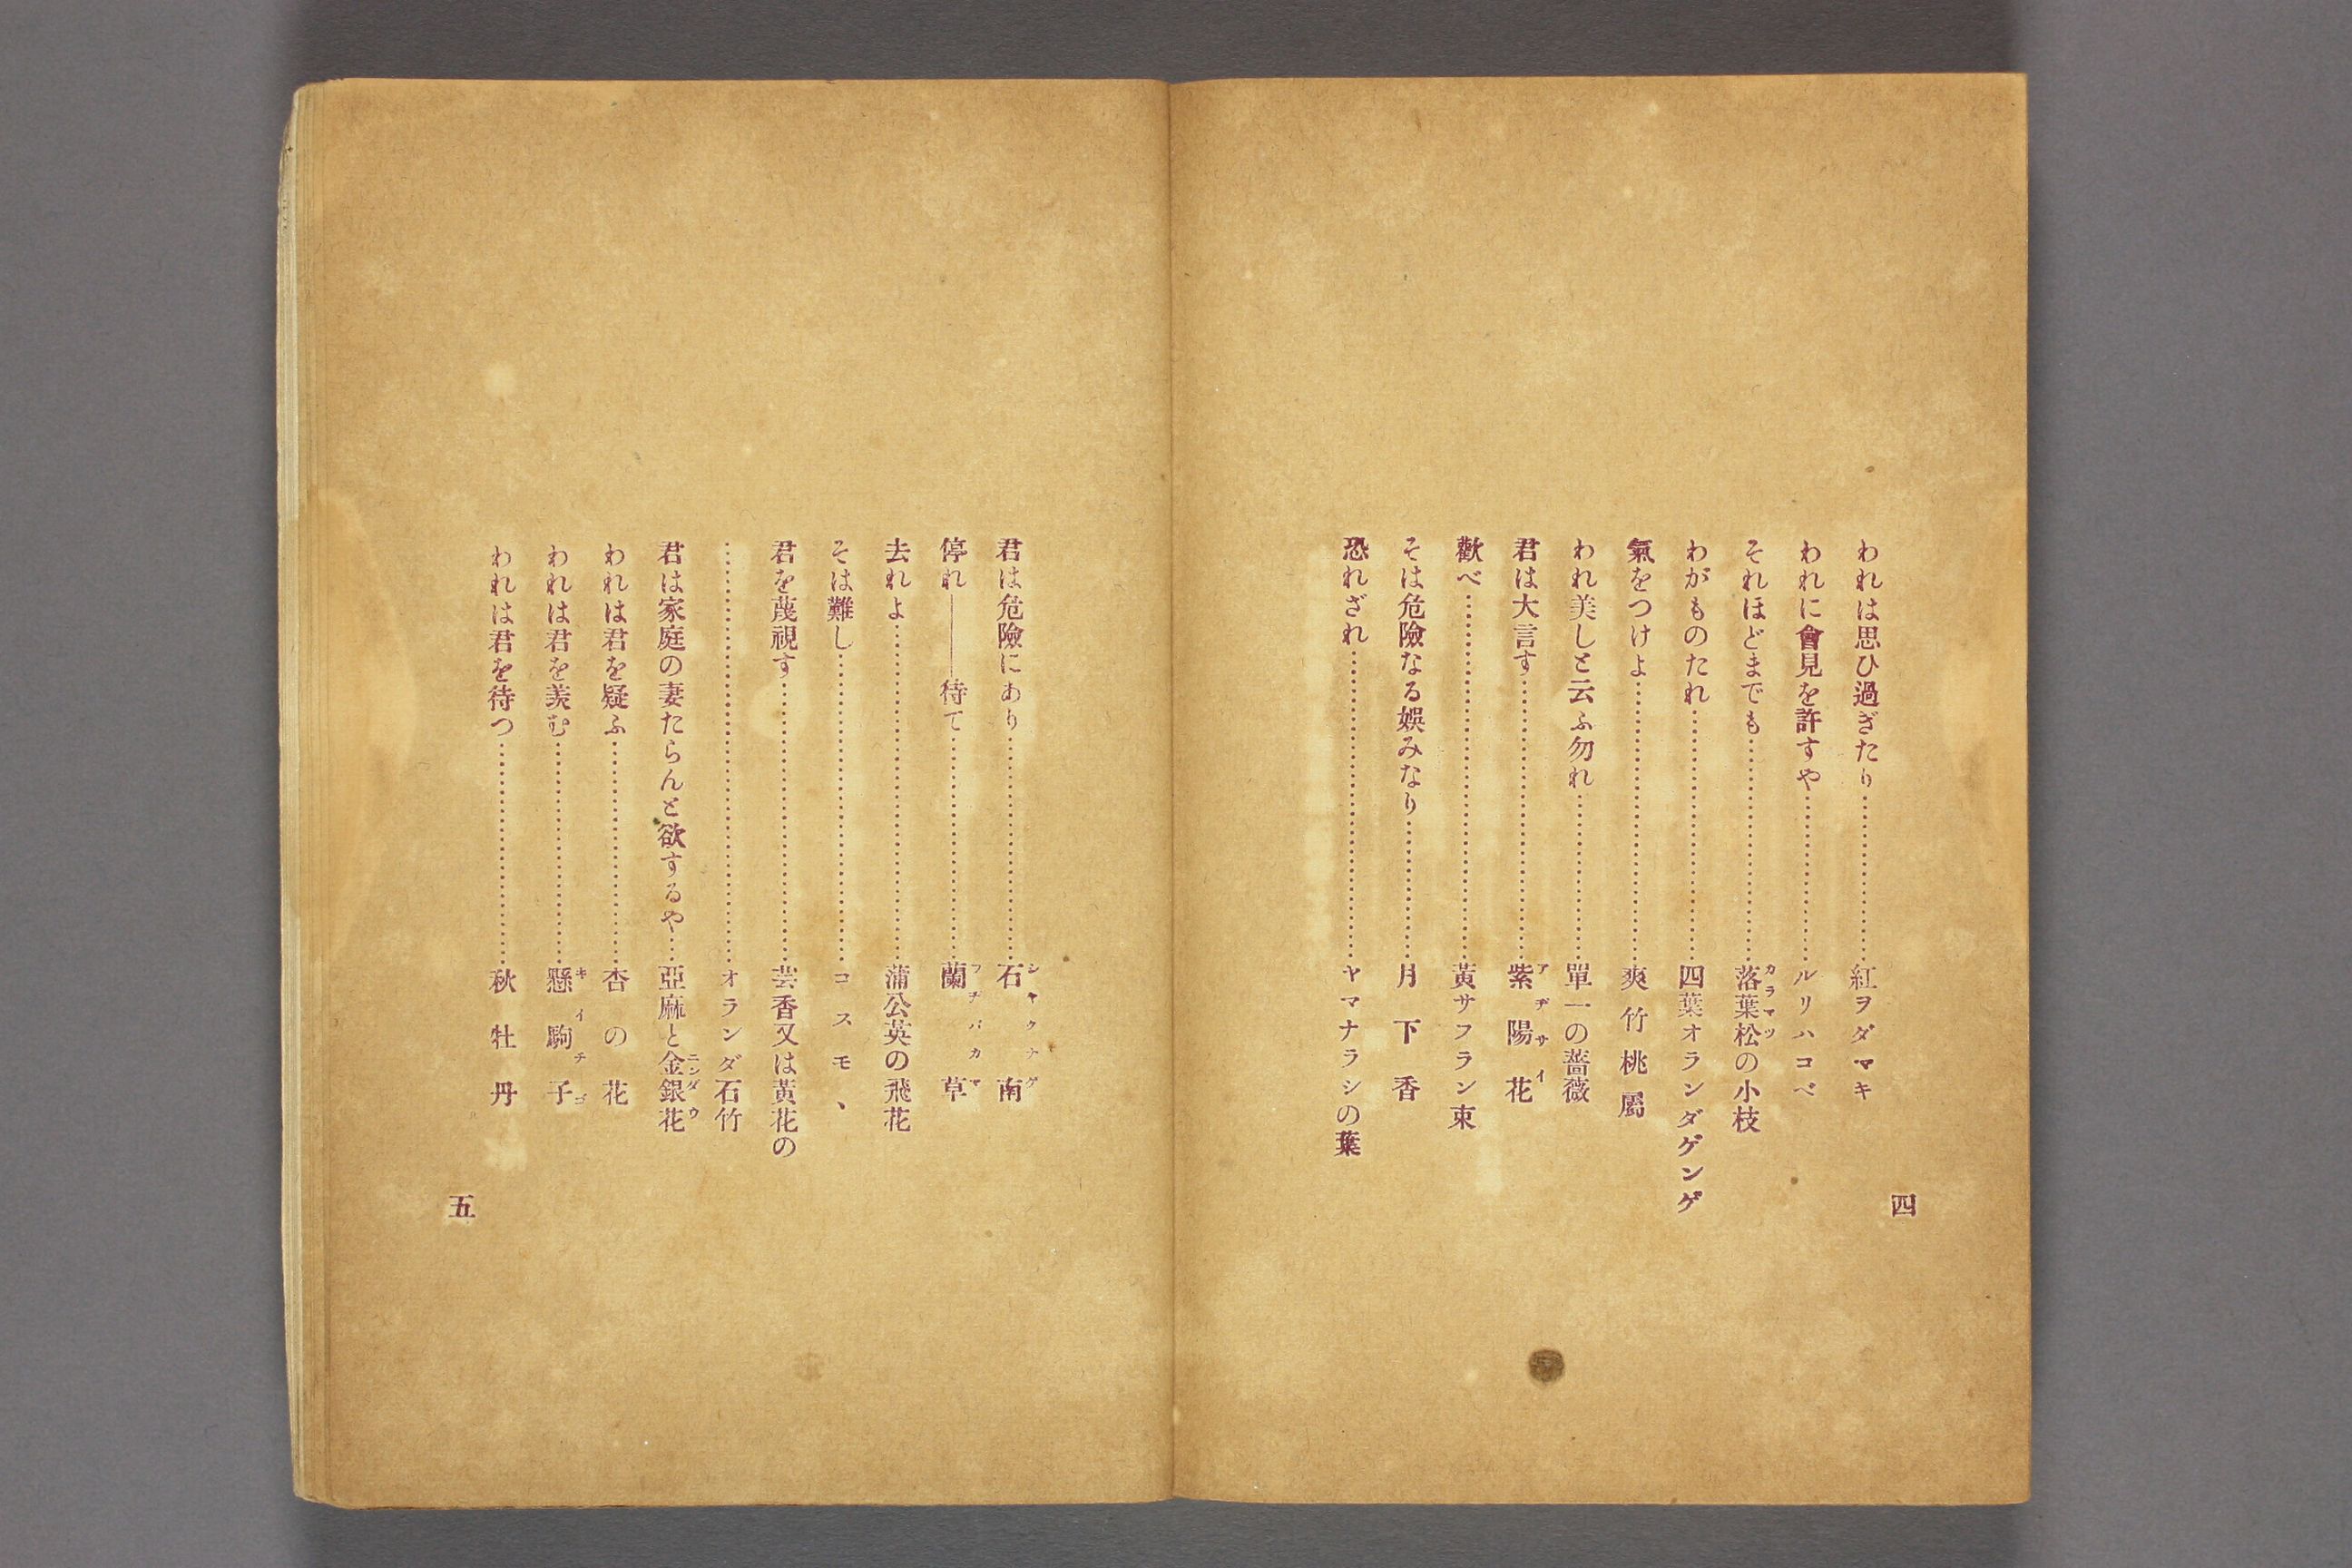 われは思ひ過ぎたり…………………紅ヲダマキ
われに會見を許すや…………………ルリハコベ
それほどまでも………………………落葉松の小枝
カラマツ
わがものたれ…………………………四葉オランダゲンゲ
氣をつけよ……………………………爽竹桃屬
われ美しと云ふ勿れ…………………單一の薔薇
君は大言す……………………………紫陽花
アヂサイ
歡べ……………………………………黃サフラン束
そは危險なる娯みなり………………月下香
恐れざれ………………………………ヤマナラシの葉
四
君は危險にあり………………………石南
シヤクナゲ
停れ――待て…………………………蘭草
フヂバカマ
去れよ…………………………………蒲公英の飛花
そは難し………………………………コスモヽ
君を蔑視す……………………………芸香又は黃花の
…………………………………………オランダ石竹
君は家庭の妻たらんと欲するや……亞麻と金銀花
ニンダウ
われは君を疑ふ………………………杏の花
われは君を羨む………………………懸駒子
キイチゴ
われは君を待つ………………………秋牡丹
五